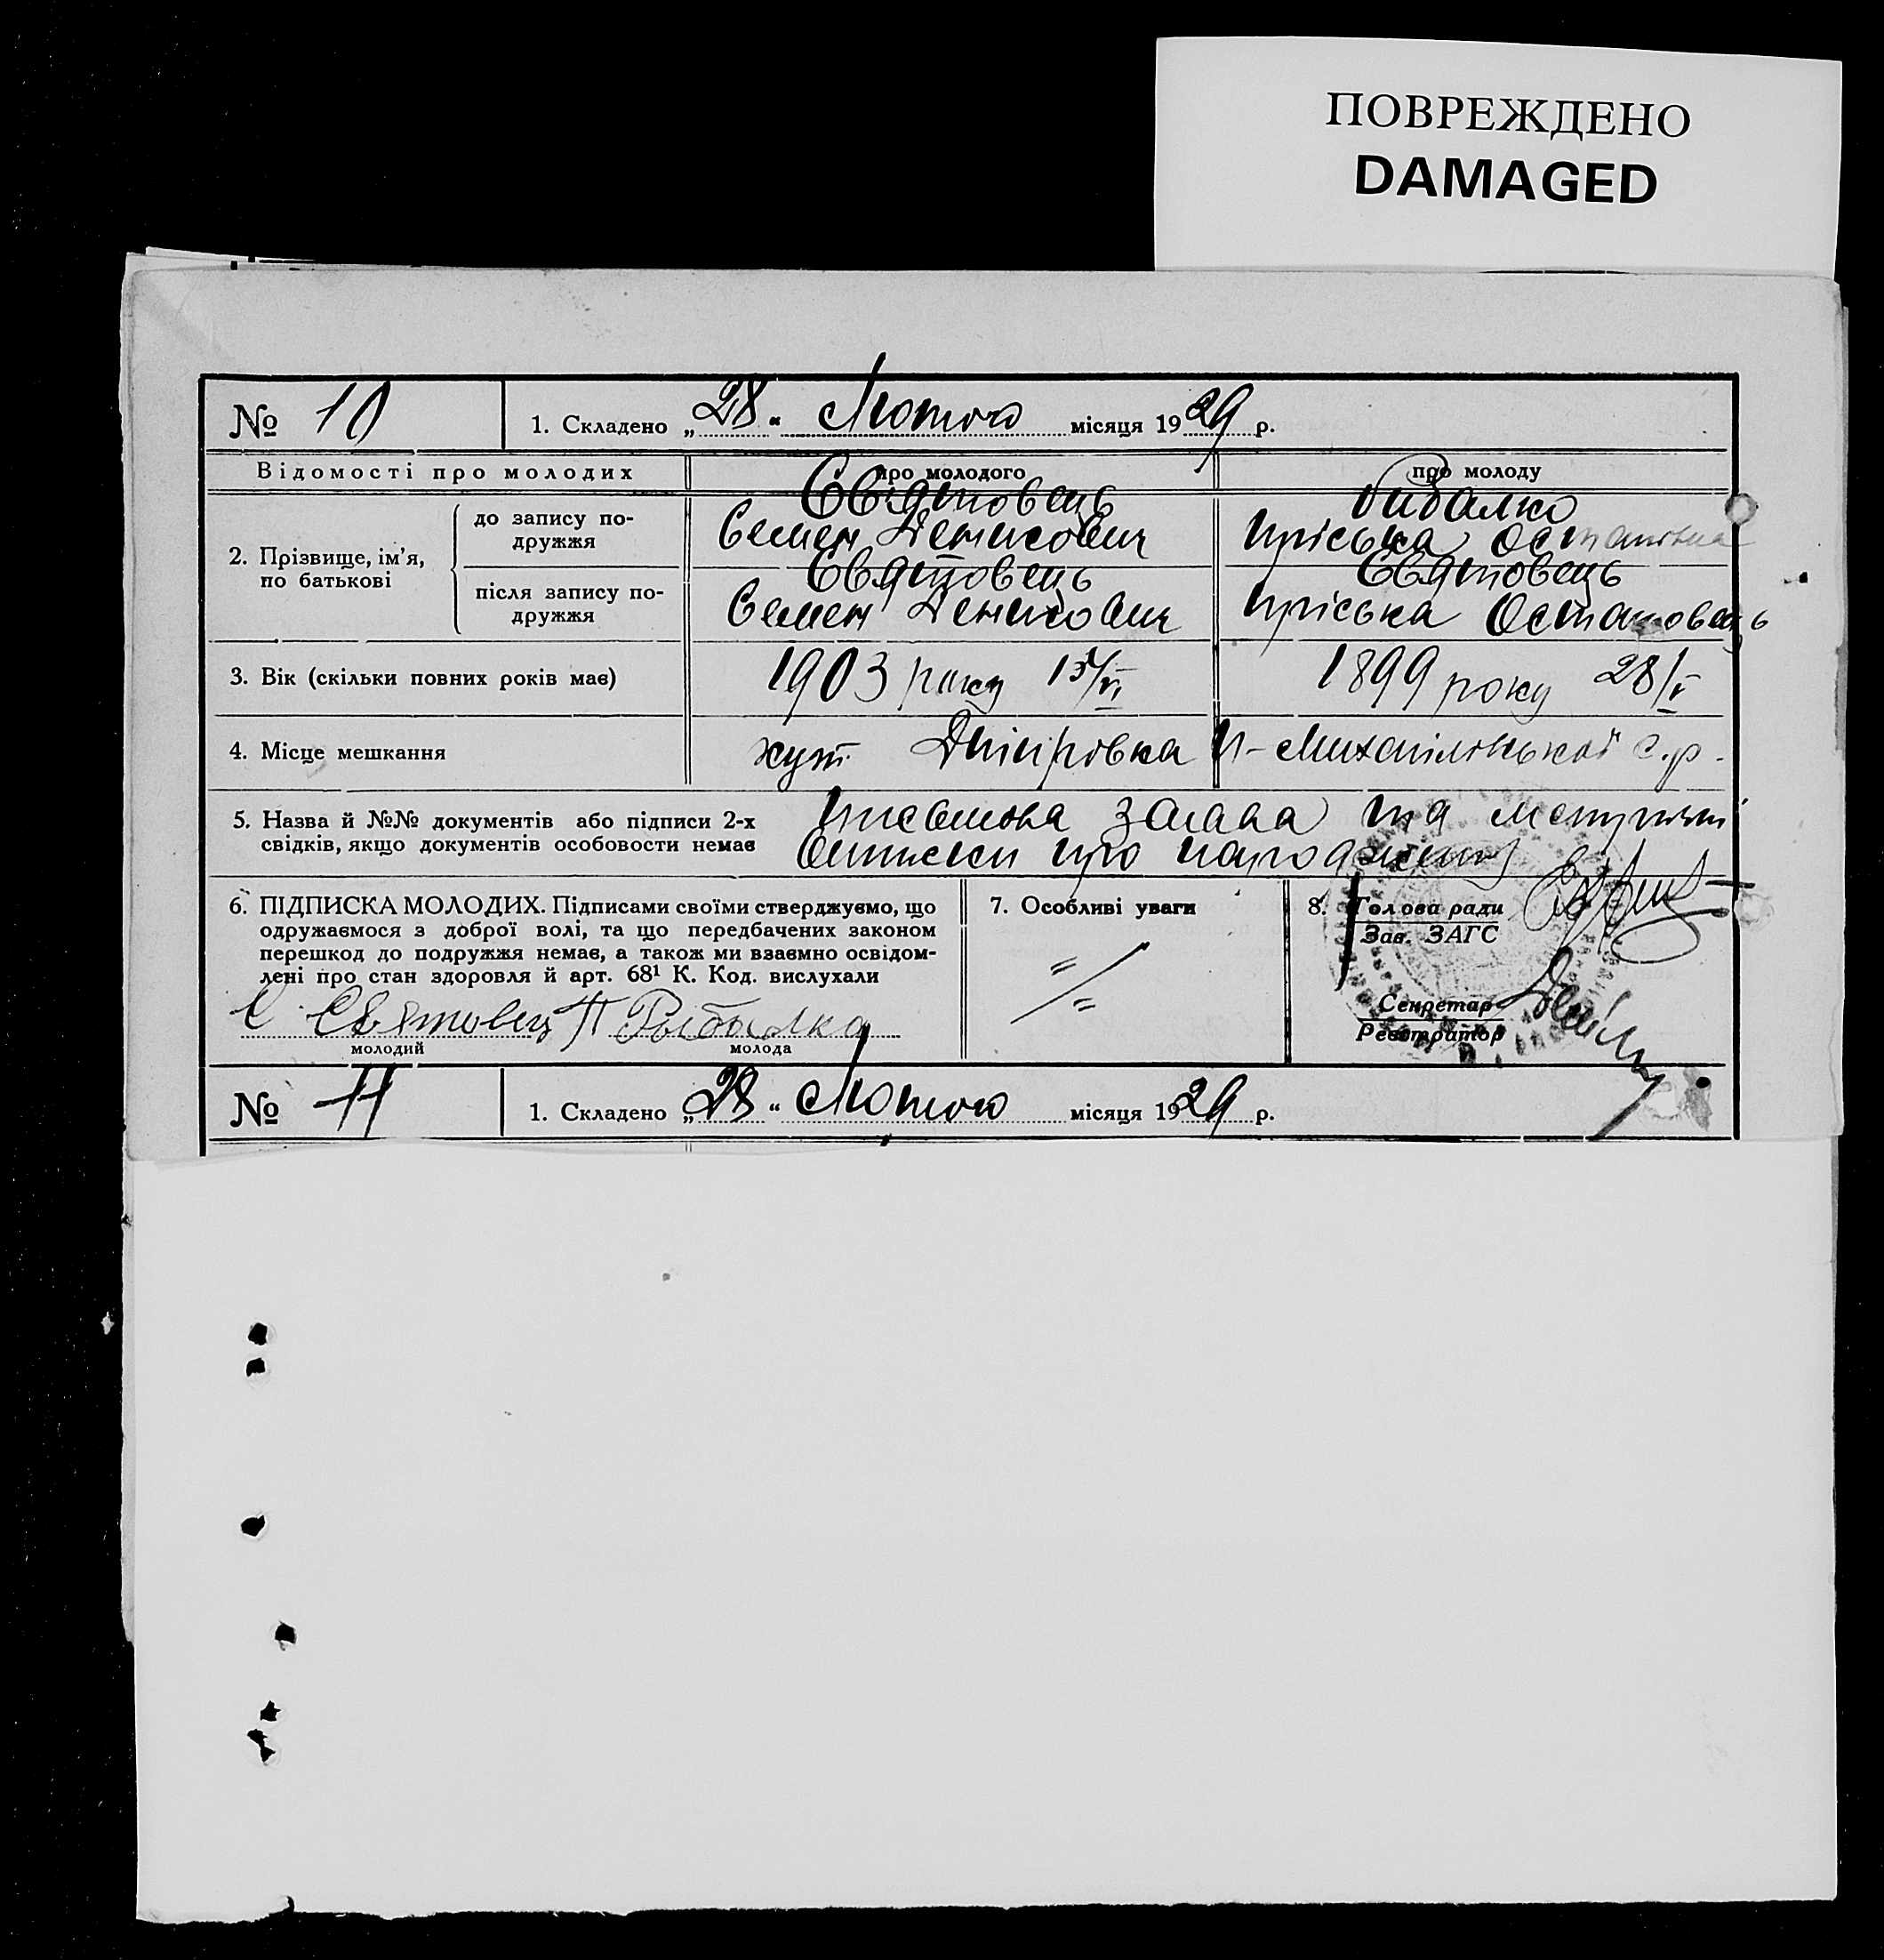 ПОВРЕЖДЕНО
DAMAGED
№ 10
1. Складено „28“ Лютого місяця 1929 р.
Відомості про молодих
про молодого
про молоду
2. Прізвище, ім’я, по батькові
до запису по-
дружжя
Святовець
Семен Денисович
Рибалко
Пріська
після запису по-
дружжя
Святовець
Семен Денисович
Святовець
Пріська
3. Вік (скільки повних років має)
1903 року
1899 року 28/V
4. Місце мешкання
хут. Дніпровка
5. Назва й №№ документів або підписи 2-х
свідків, якщо документів особовости немає
заява та
про народження
6. ПІДПИСКА МОЛОДИХ. Підписами своїми стверджуємо, що
одружаємося з доброї волі, та що передбачених законом
перешкод до подружжя немає, а також ми взаємно освідом-
лені про стан здоровля й арт. 68¹ К. Код. вислухали
С Святовец П Рыбалка
молодий
молода
7. Особливі уваги
8. Голова ради
Зав. ЗАГС
Секретар
Реєстратор
№ 11
1. Складено „28“ Лютого місяця 1929 р.